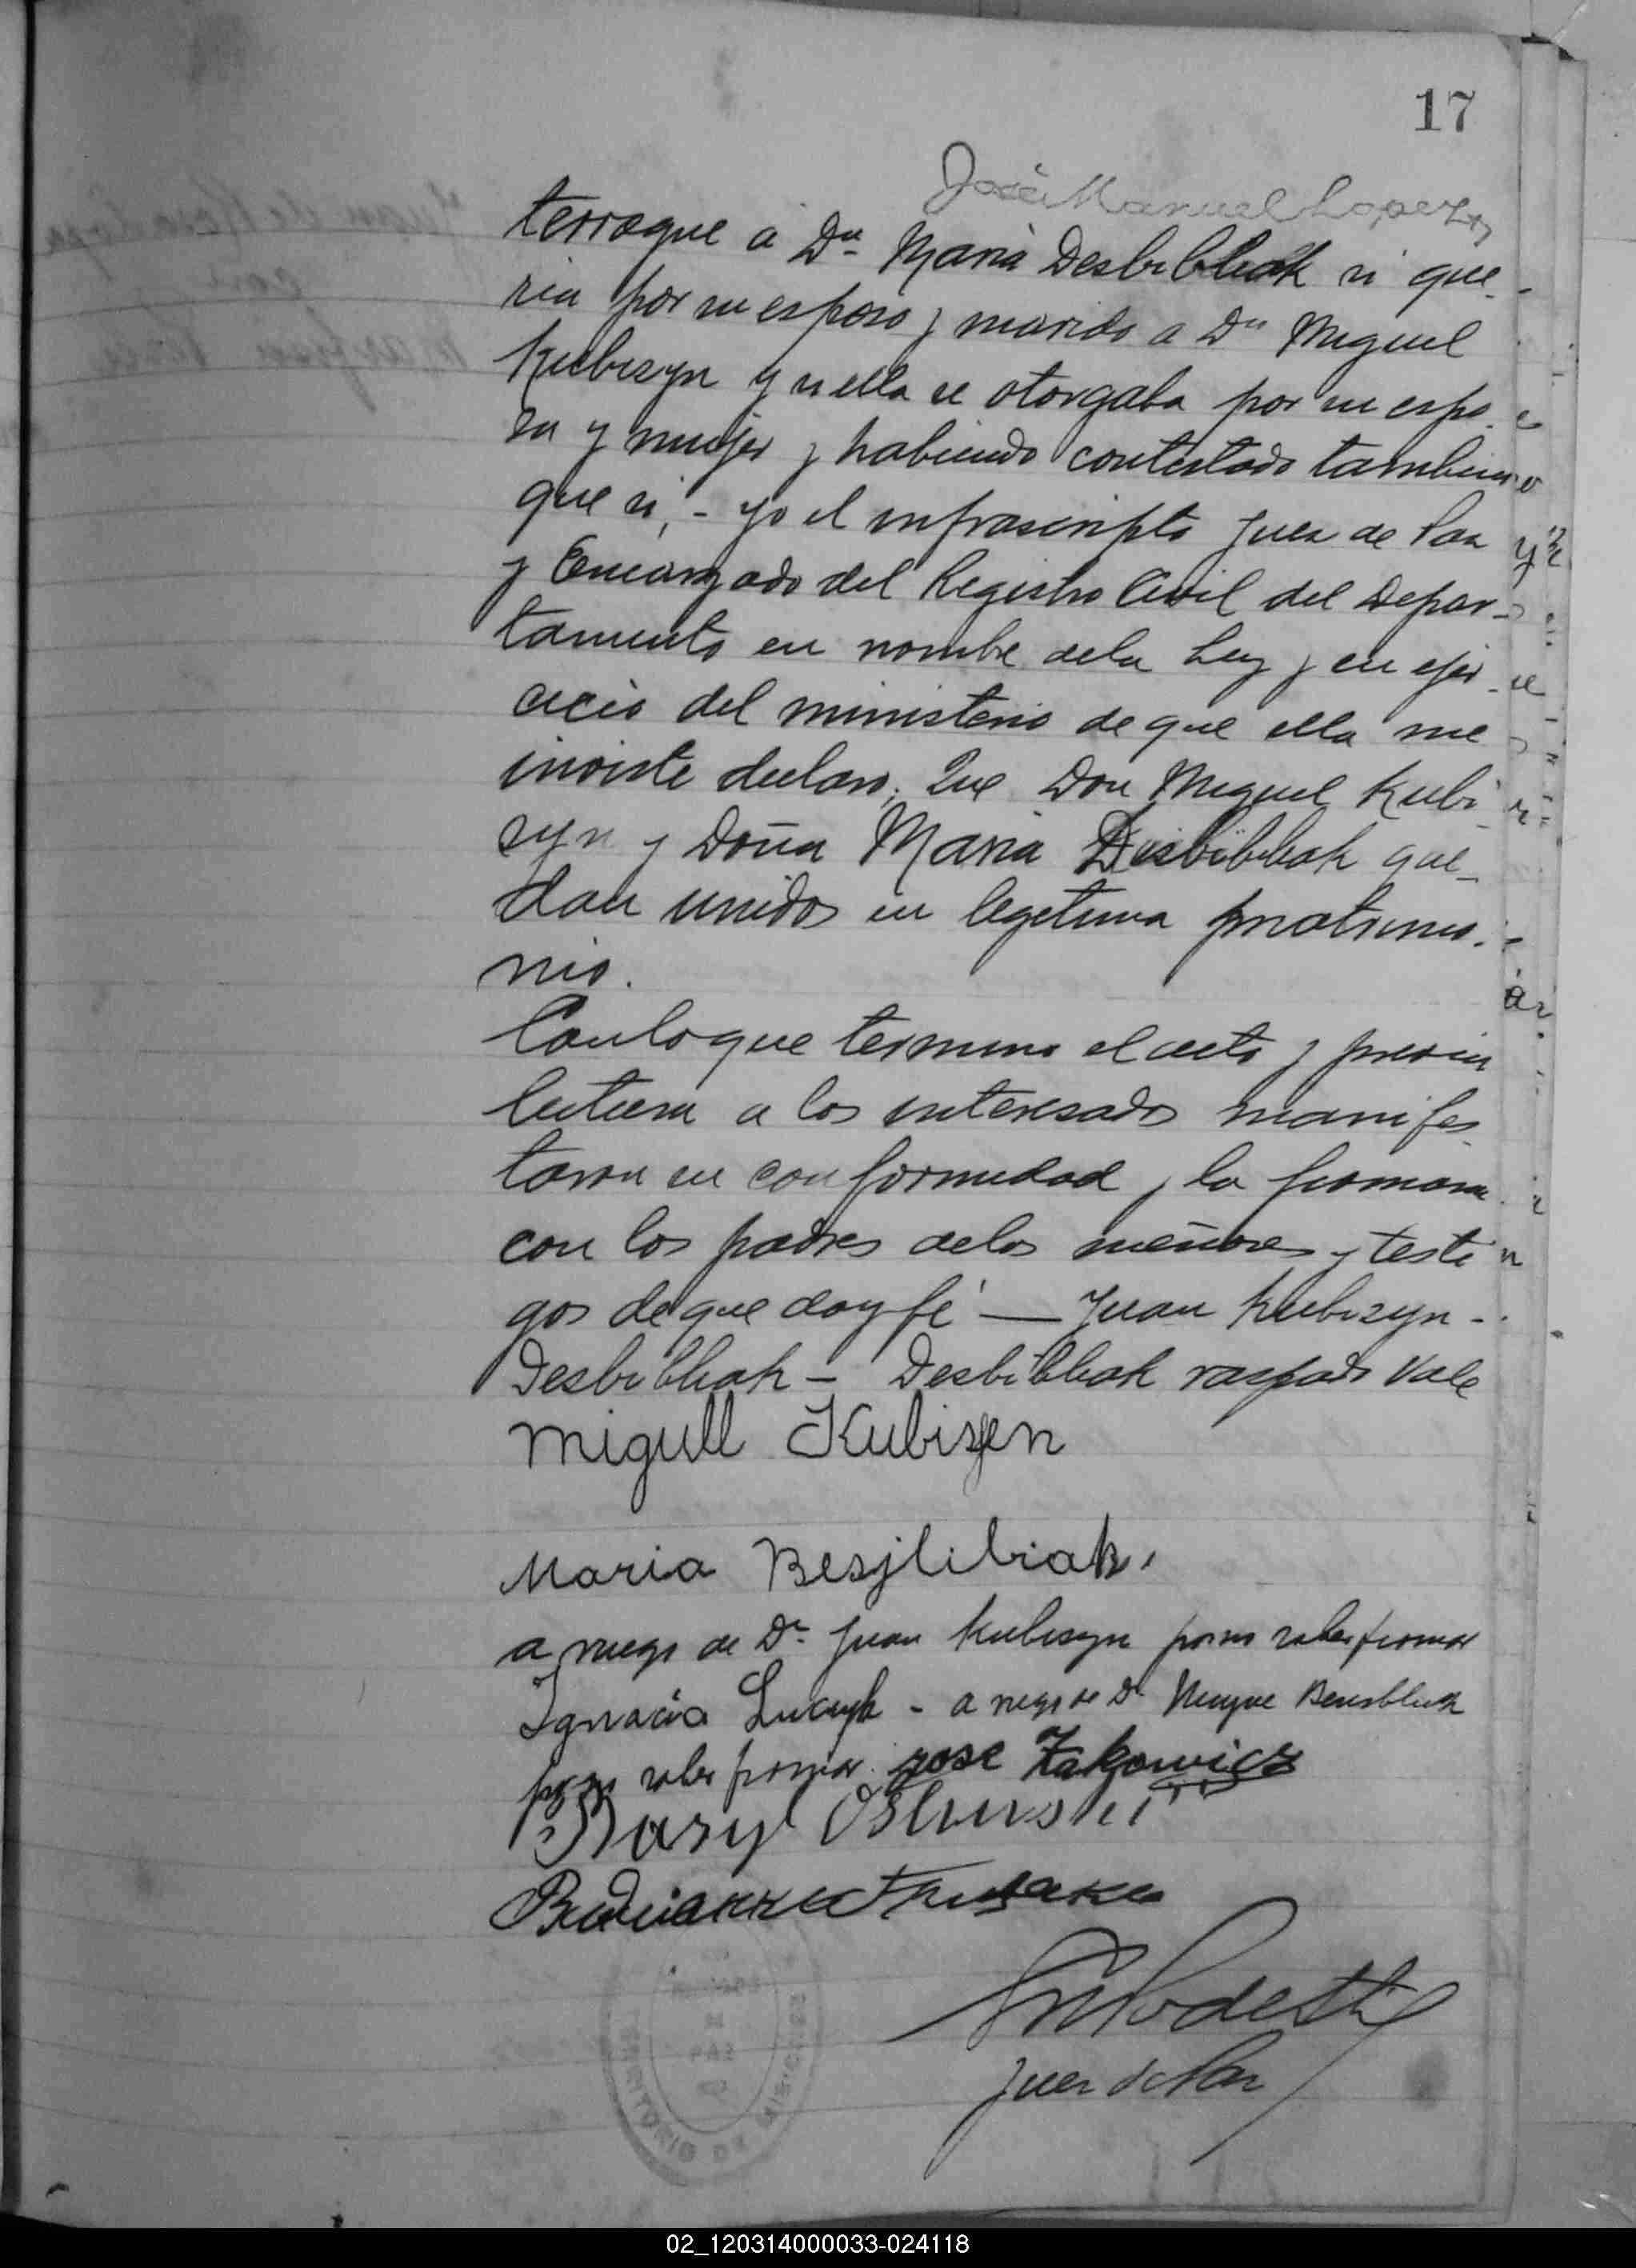 17
José Manuel Lopez
terrogue á Dª Maria Desbibliak si que-
ria por su esposo y marido a Dn Miguel
Kubiszyn y si ella se otorgaba por su espo-
sa y mujer y habiendo contestado tambien
que si, - yo el infrascripto Juez de Paz
y Encargado del Registro Civil del Depar-
tamento en nombre dela Ley y en ejer-
cicio del ministerio de que ella me
inviste declaro; Que Don Miguel Kubi-
szyn y Doña Maria Desbibliak que-
dan unidos en legitimo matrimo-
nio.
Conloque termino el acto y previa
lectura a los interesados manifes-
taron su conformidad y la firmaron
con los padres delos menores y testi
gos de que doy fé — Juan Kubiszyn -
Desbibliak - Desbibliak raspado Vale
Migull Kubiszen
Maria Besjlibiak.
a ruego de Dn Juan Kubiszyn por no saber firmar
Ignacio Luczyk - a ruego de Dn
por no saber firmar. Jose Zakowicz
Bazyl
Juez de Paz
JUZGADO DE PAZ
TERRITORIO DE MISIONES
02_120314000033-024118